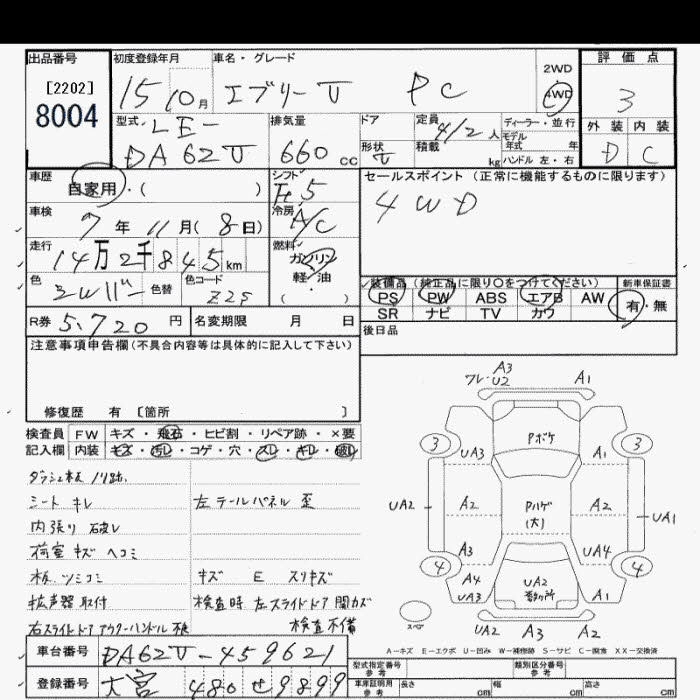 出品番号
[2202]
8004
初度登録年月
15 10月
車名・グレード
エブリーV PC
2WD
4WD
評価点
3
外装 内装
D C
型式 LE-
DA62V
排気量
660 cc
ドア
形状 V
定員 4/2 人
積載 kg
ディーラー・並行
モデル
年式 年
ハンドル 左・右
車歴
自家用・( )
シフト
F5
車検
7年 11月(8日)
冷房
A/C
走行
14万2千845km
燃料
ガソリン
軽・油
( )
色
シルバー
色替
色コード
Z2S
R券 5,720 円
名変期限 月 日
セールスポイント (正常に機能するものに限ります)
4WD
装備品 (純正品に限り○をつけてください)
新車保証書
PS PW ABS エアB AW
SR ナビ TV カワ
有・無
後日品
注意事項申告欄(不具合内容等は具体的に記入して下さい)
修復歴 有 〔箇所 〕
検査員 FW キズ・飛石・ヒビ割・リペア跡・×要
記入欄 内装 キズ・汚レ・コゲ・穴・スレ・キレ・破レ
ダッシュ板 ノリ跡
シート キレ
左テールパネル 歪
内張り 破レ
荷室 キズ ヘコミ
キズ E スリキズ
拡声器 取付
検査時 左スライドドア 開カズ
右スライドドア アウターハンドル
検査不備
車台番号 DA62V-459621
登録番号 大宮 480せ9899
A3
ワレ・U2
A1
Pボケ
3
3
UA3
A1
UA2
A2
Pハゲ
(大)
A2
UA1
A3
UA4
4
4
A4
UA3
UA2
A1
スペア
UA2 A3 A2
A-キズ E-エクボ U-凹み W-補修跡 S-サビ C-腐食 XX-交換済
型式指定番号
参考
類別区分番号
参考
車庫証明用
参考
長さ cm
幅 cm
高さ cm